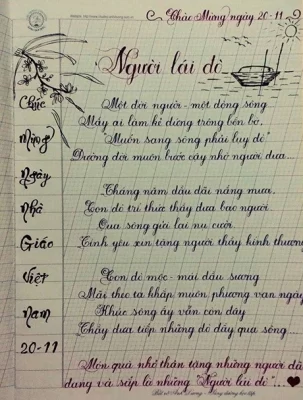 Chào Mừng ngày 20-11
Người lái đò
Chúc
Mừng
Ngày
Nhà
Giáo
Việt
Nam
20-11
Một đời người - một dòng sông
Mấy ai làm kẻ đứng trông bên bờ,
"Muốn sang sông phải lụy đò"
Đường đời muôn bước cậy nhờ người đưa...
Tháng năm dầu dãi nắng mưa,
Con đò trí thức thầy đưa bao người
Qua sông gửi lại nụ cười
Tình yêu xin tặng người thầy kính thương
Con đò mộc - mái đầu sương
Mãi theo ta khắp muôn phương vạn ngày
Khúc sông ấy vẫn còn đây
Thầy đưa tiếp những đò đầy qua sông...
Món quà nhỏ thân tặng những người đã
đang và sắp là những "Người lái đò"...